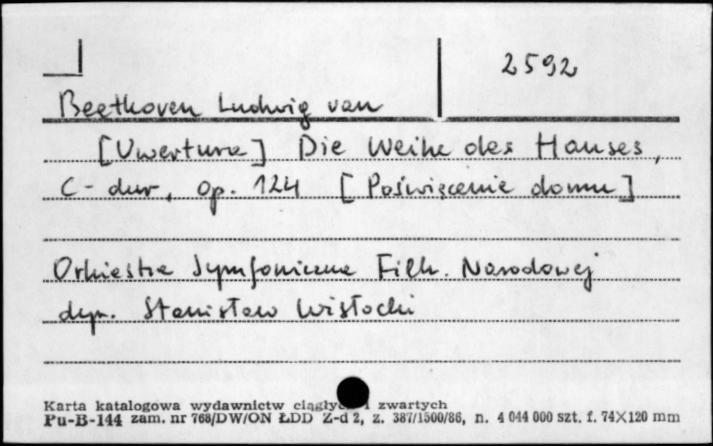 2592
Beethoven Ludwig van
[Uwertura] Die Weihe des Hauses,
C-dur, op. 124 [Poświęcenie domu]
Orkiestra Symfoniczna Filh. Narodowej
dyr. Stanisław Wisłocki
Karta katalogowa wydawnictw ciągłych i zwartych
Pu-B-144 zam. nr 768/DW/ON ŁDD Z-d 2, z. 387/1500/86, n. 4 044 000 szt. f. 74X120 mm